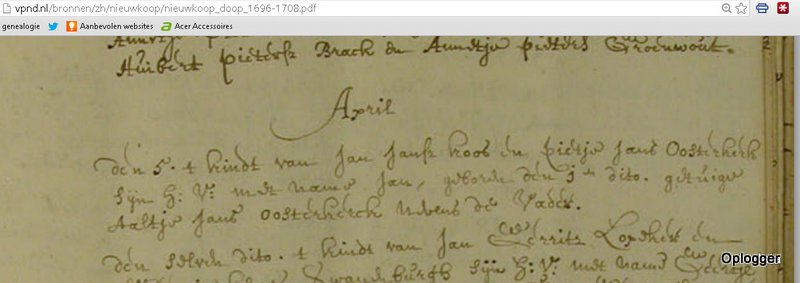 vpnd.nl/bronnen/zh/nieuwkoop/nieuwkoop_doop_1696-1708.pdf
genealogie Aanbevolen websites Acer Accessoires
Huibert pietersz Brack en Annetje pieters Groenwout.
April
den 5. t kindt van Jan Jansz koos en pietje Jans Oosterkerk
sijn H: V: met name Jan, geboren den dito. getuige
Aaltje Jans Oosterkerck nevens de Vader.
den selven dito. t kindt van Jan Gerritz en
sijn H: V: met name Geertje
Oplogger